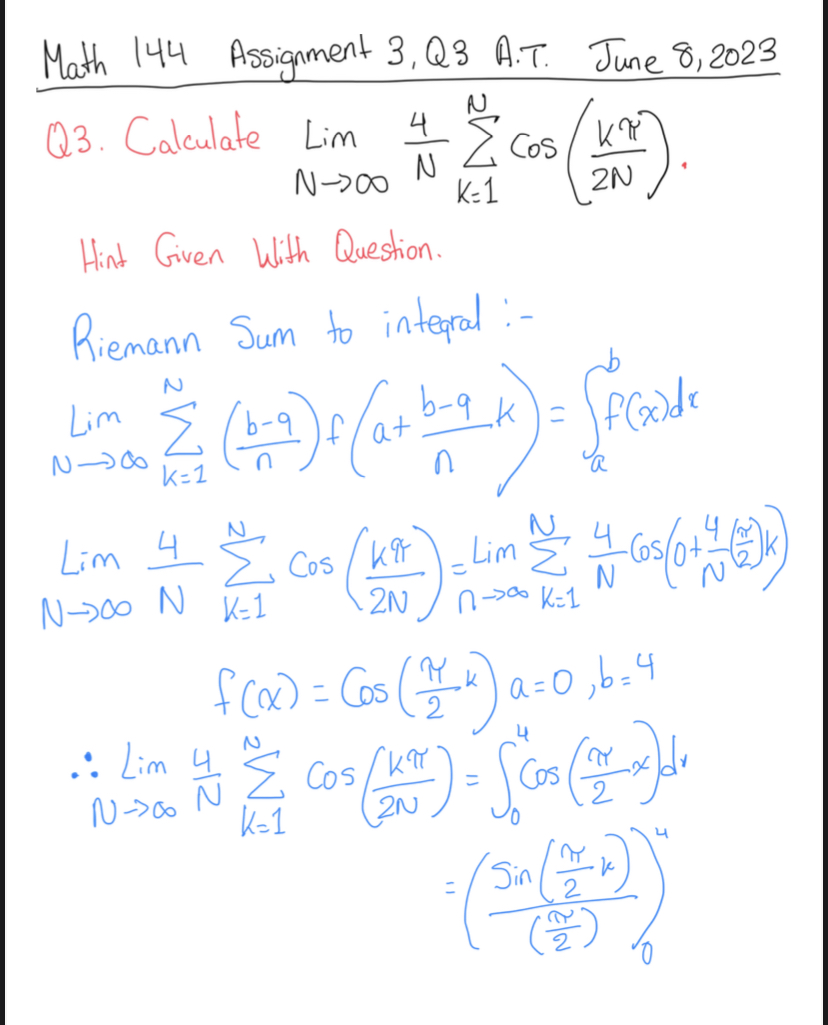 Math 144 Assignment 3, Q3 A.T. June 8, 2023
Q3. Calculate Lim N→∞ 4/N N Σ k=1 Cos (kπ/2N).
Hint Given With Question.
Riemann Sum to integral :-
Lim N→∞ N Σ k=1 (b-a/n) f (a+ b-a/n k) = ∫ b a f(x)dx
Lim N→∞ 4/N N Σ k=1 Cos (kπ/2N) = Lim n→∞ N Σ k=1 4/N Cos(0+ 4/N (π/2)k)
f(x) = Cos (π/2 k) a=0, b=4
∴ Lim N→∞ 4/N N Σ k=1 Cos (kπ/2N) = ∫ 4 0 Cos (π/2 x)dx
= (Sin (π/2 k) / (π/2)) 4 0